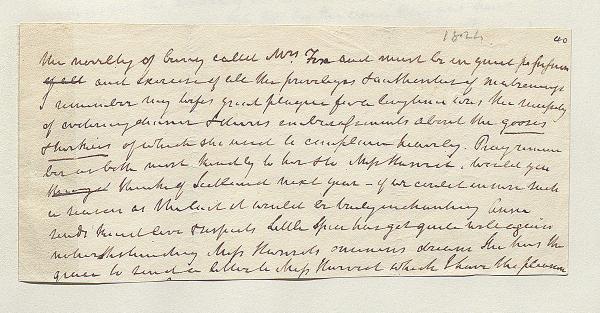 1824.
40
the novelty of being called Mrs. Fox and must be in quiet possession
of all and exercise of all the privileges & authorities of matronage
I remember my wifes great plague for a long time was the necessity
of ordering dinner & thus embarrassments about the gooses
& turkies of which she used to complain heavily. Pray remem
ber us both most kindly to her & to Miss would you
think of Scotland next year – if we could ensure such
a season as the last it would be truly enchanting Anne
sends kind love & respects Little Spice has got quite well again
notwithstanding Miss ominous dream She has the
grace to send a letter to Miss which I have the pleasure